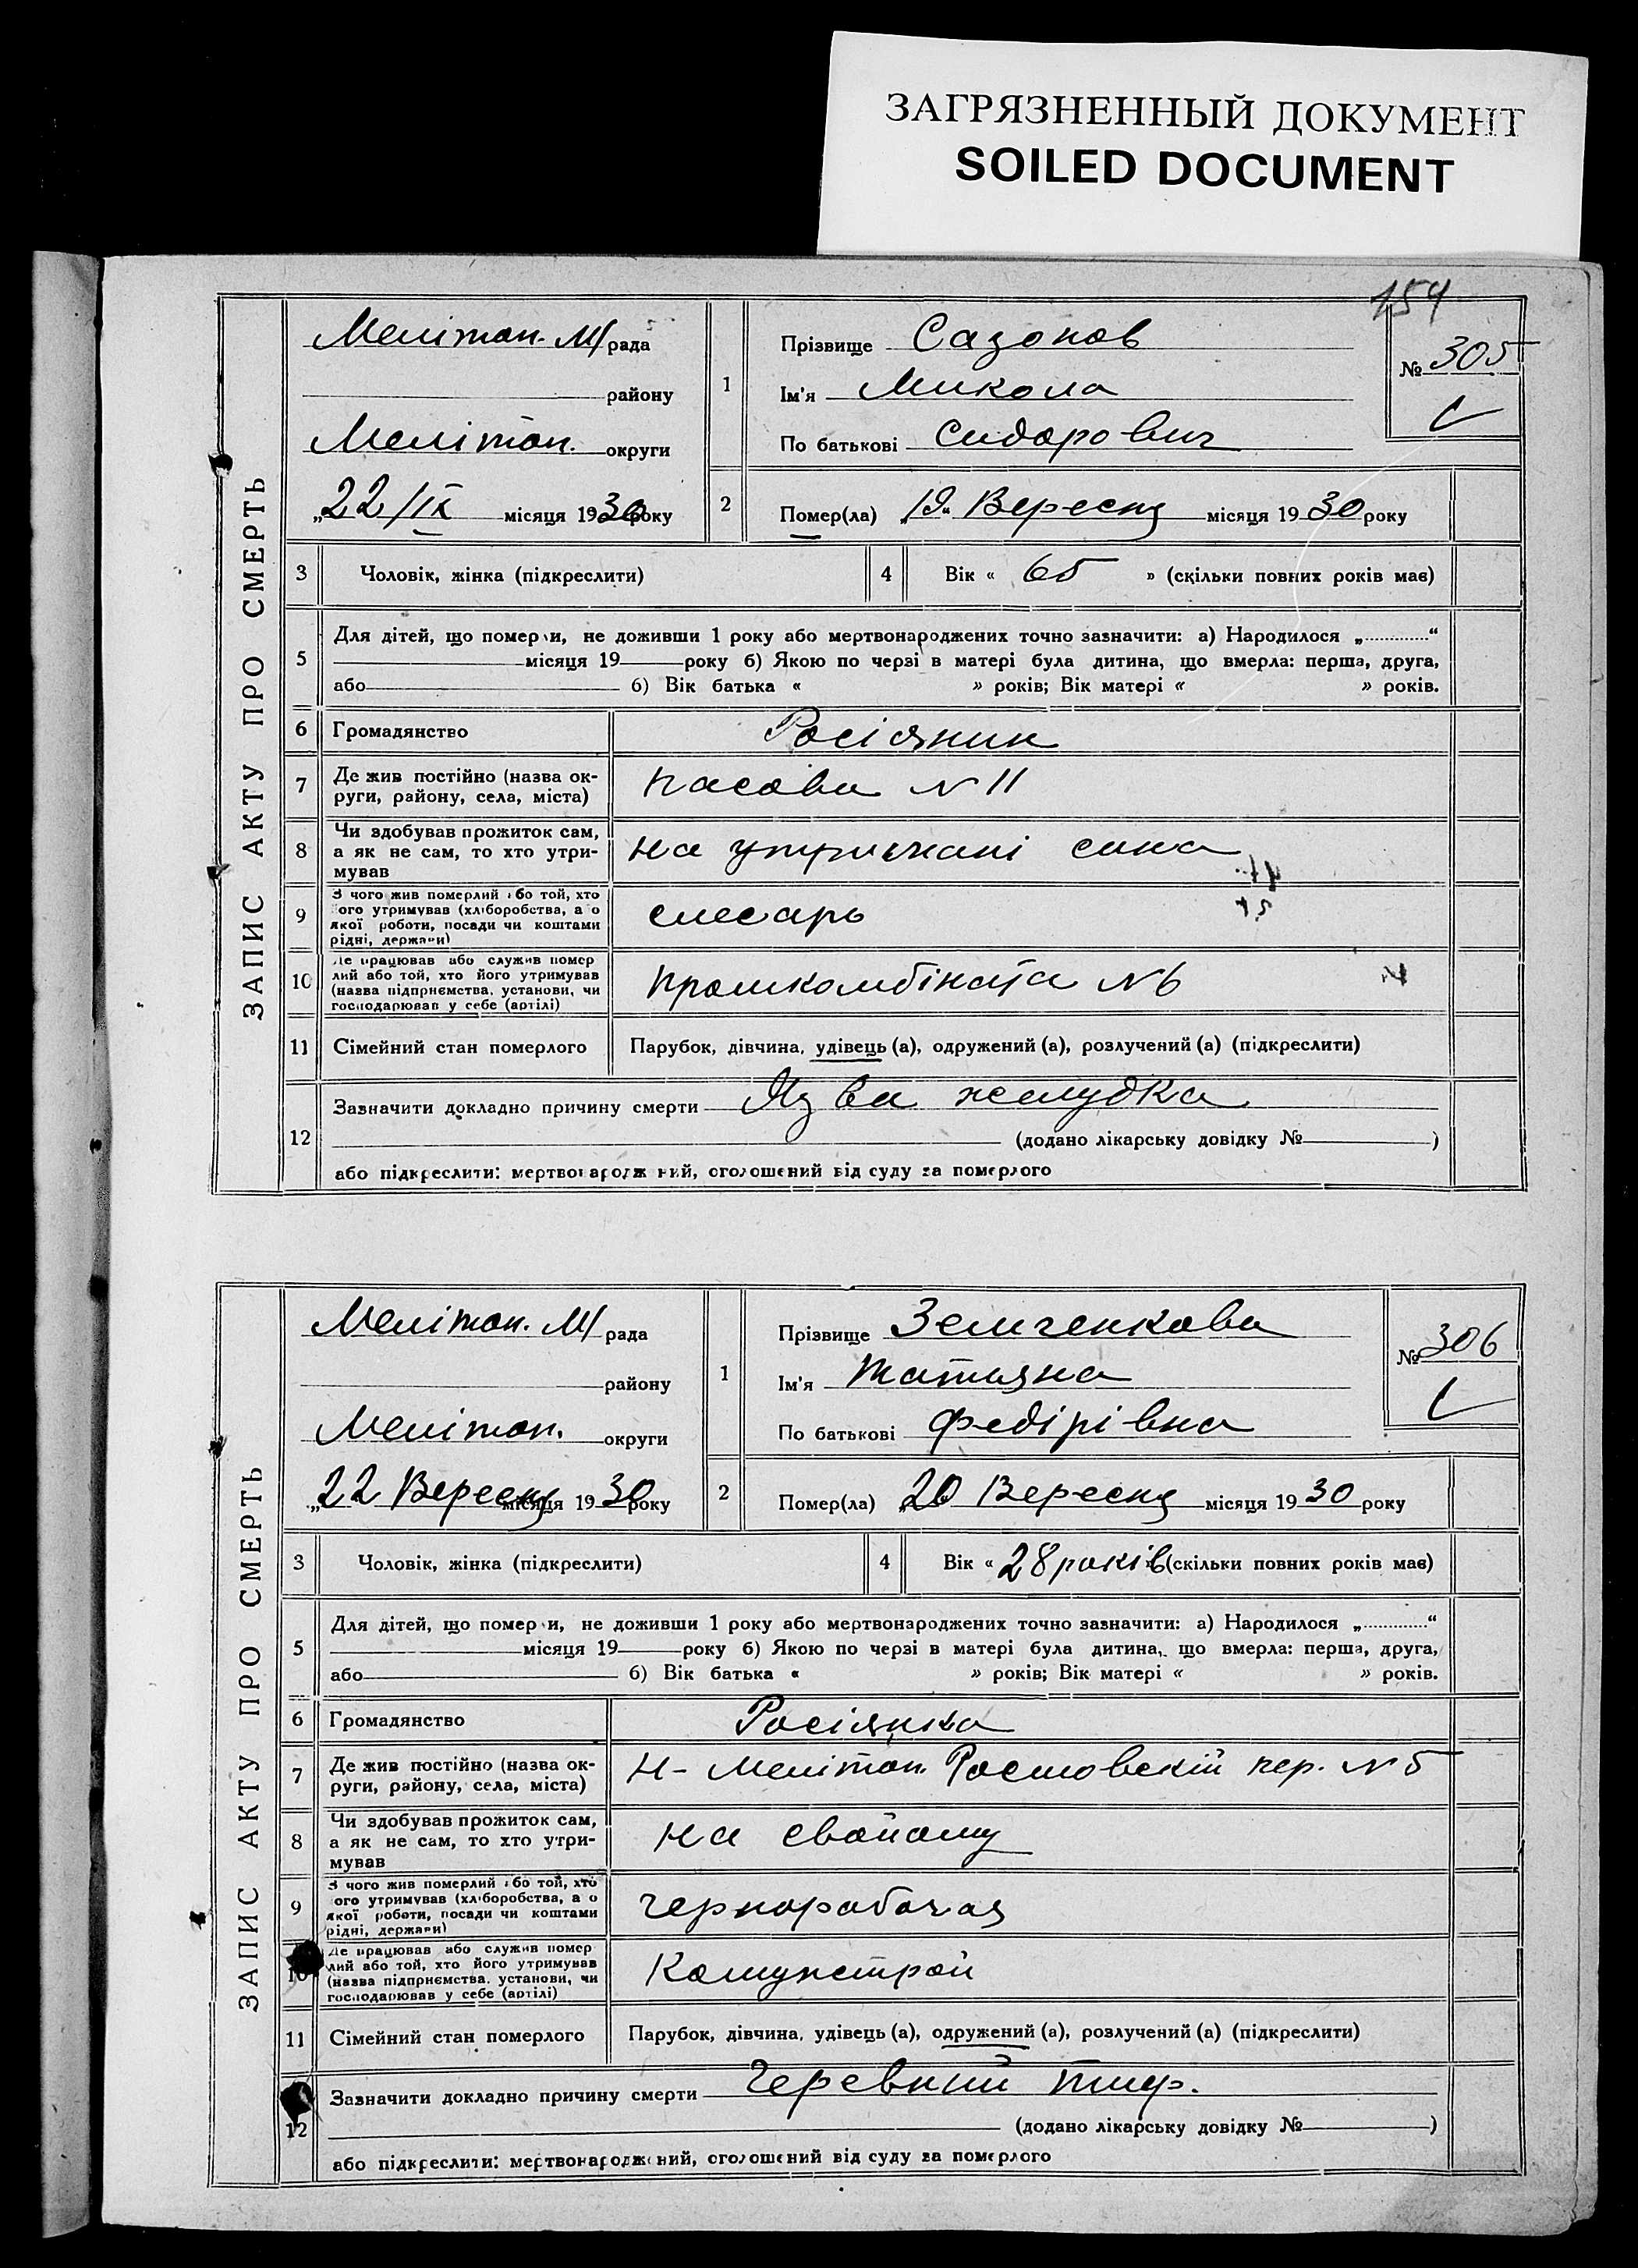 ЗАГРЯЗНЕННЫЙ ДОКУМЕНТ
SOILED DOCUMENT
154
ЗАПИС АКТУ ПРО СМЕРТЬ
Мелітоп. М/рада
району
Мелітоп. округи
„22/IX місяця 1930 року
1
Прізвище Сазонов
Ім'я Микола
По батькові Сидорович
№ 305
2
Помер(ла) „19“ Вересня місяця 1930 року
3 Чоловік, жінка (підкреслити)
4 Вік « 65 » (скільки повних років має)
5 Для дітей, що померли, не доживши 1 року або мертвонароджених точно зазначити: а) Народилося „ “
місяця 19 року б) Якою по черзі в матері була дитина, що вмерла: перша, друга,
або б) Вік батька « » років; Вік матері « » років.
6 Громадянство Росіянин
7 Де жив постійно (назва округи, району, села, міста)
Пасова N 11
8 Чи здобував прожиток сам,
а як не сам, то хто утри-
мував
на утримані сина
9 З чого жив померлий або той, хто
його утримував (хліборобства, або
якої роботи, посади чи коштами
рідні, держави)
слесарь
10 Де працював або служив помер
лий або той, хто його утримував
(назва підприємства, установи, чи
господарював у себе (артілі)
Промкомбіната N 6
11 Сімейний стан померлого Парубок, дівчина, удівець (а), одружений (а), розлучений (а) (підкреслити)
12 Зазначити докладно причину смерти Язва желудка
(додано лікарську довідку № )
або підкреслити: мертвонароджений, оголошений від суду за померлого
ЗАПИС АКТУ ПРО СМЕРТЬ
Мелітоп. М/рада
району
Мелітоп. округи
„22 Вересня місяця 1930 року
1
Прізвище Земченкова
Ім'я Татьяна
По батькові Федірівна
№ 306
2
Помер(ла) „20 Вересня місяця 1930 року
3 Чоловік, жінка (підкреслити)
4 Вік « 28 років (скільки повних років має)
5 Для дітей, що померли, не доживши 1 року або мертвонароджених точно зазначити: а) Народилося „ “
місяця 19 року б) Якою по черзі в матері була дитина, що вмерла: перша, друга,
або б) Вік батька « » років; Вік матері « » років.
6 Громадянство Росіянка
7 Де жив постійно (назва ок-
руги, району, села, міста)
Н- Мелітоп. Ростовскій пер. N 5
8 Чи здобував прожиток сам,
а як не сам, то хто утри-
мував
на свойому
9 З чого жив померлий або той, хто
його утримував (хліборобства, або
якої роботи, посади чи коштами
рідні, держави)
чернорабочая
10 Де працював або служив помер
лий або той, хто його утримував
(назва підприємства, установи, чи
господарював у себе (артілі)
Комунстрой
11 Сімейний стан померлого Парубок, дівчина, удівець (а), одружений (а), розлучений (а) (підкреслити)
12 Зазначити докладно причину смерти Черевний тиф.
(додано лікарську довідку № )
або підкреслити: мертвонароджений, оголошений від суду за померлого